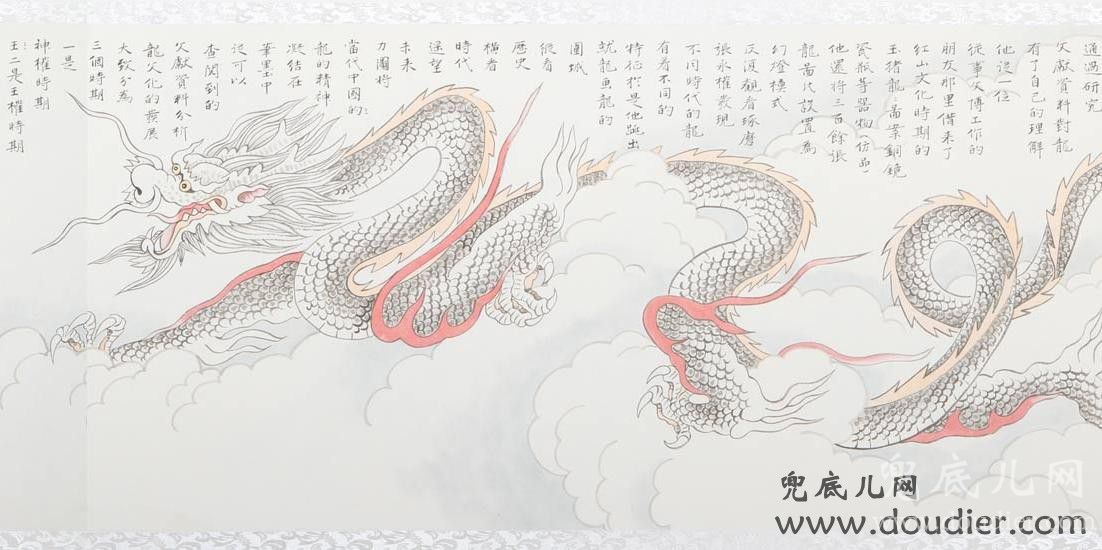 通過研究
文獻資料對龍
有了自己的理解
他從一位
從事文博工作的
朋友那里借來了
紅山文化時期的
玉猪龍、圖案銅鏡
瓷瓶等器物（仿品）
他還將三百餘張
龍圖片設置為
幻燈模式
反復觀看琢磨
張永權發現
不同時代的龍
有着不同的
特征於是他跳出
就龍 龍的
圍城
縱看
歷史
橫看
時代
遥望
未来
力圖將
當代中國的
龍的精神
凝結在
筆墨中
從可以
查閱到的
文獻資料分析
龍文化的發展
大致分為
三個時期
一是
神權時期
二是王權時期
兜底儿网
www.doudier.com
兜底儿网